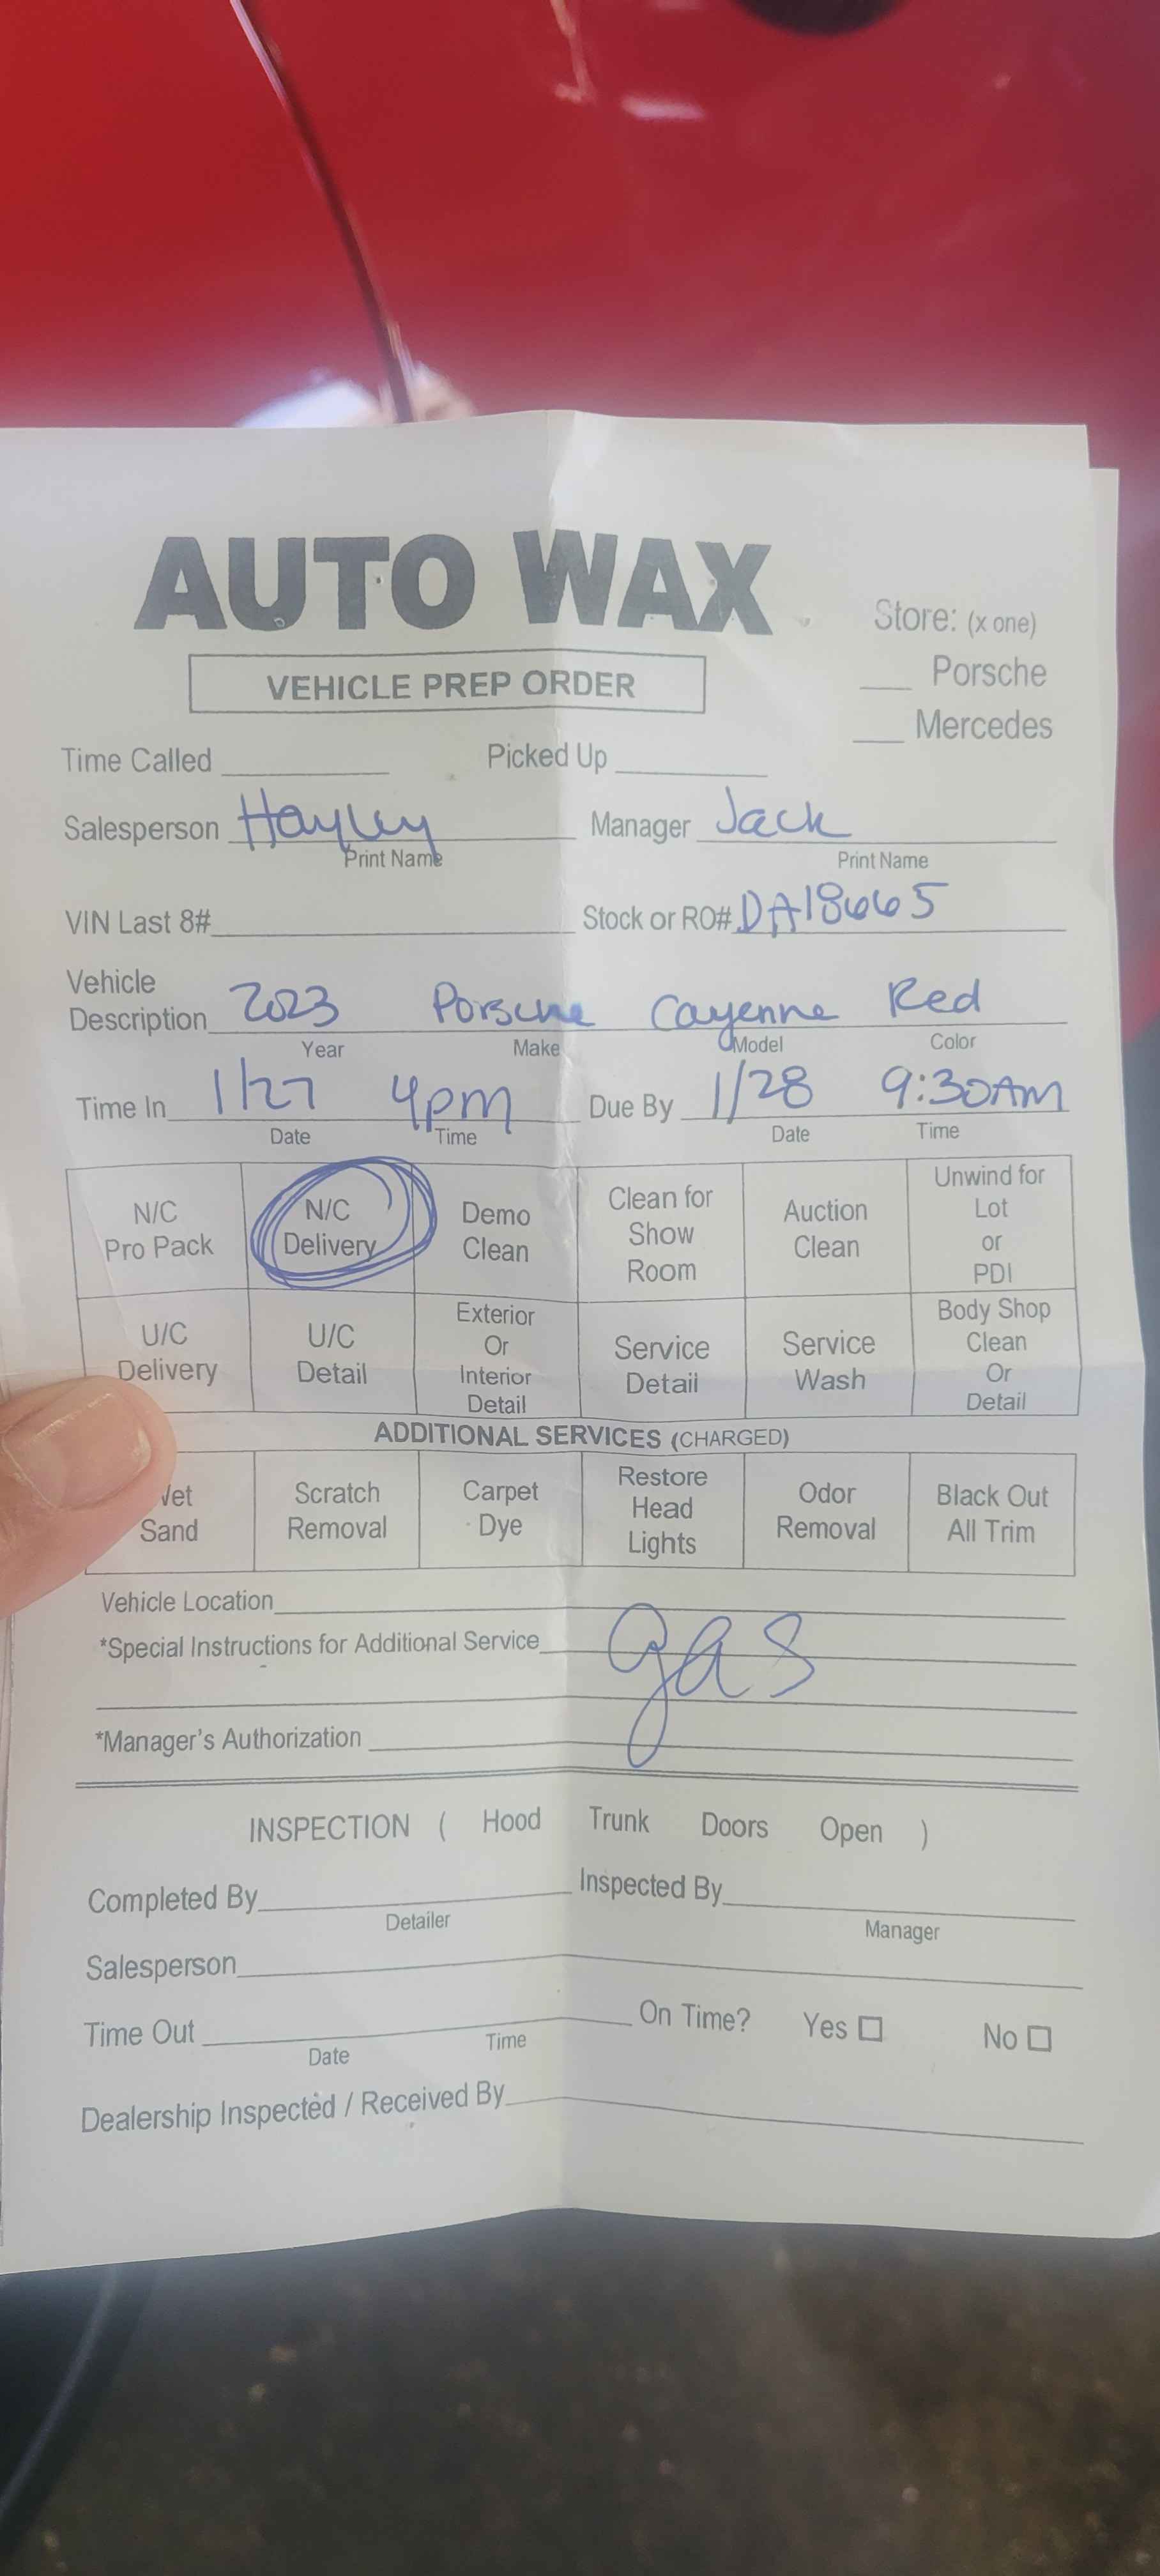 AUTO WAX
Store: (x one)
VEHICLE PREP ORDER
___ Porsche
___ Mercedes
Time Called ________ Picked Up ________
Salesperson Hayley Manager Jack
Print Name Print Name
VIN Last 8# ________ Stock or RO# DA18665
Vehicle
Description 2023 Porsche Cayenne Red
Year Make Model Color
Time In 1/27 4pm Due By 1/28 9:30AM
Date Time Date Time
N/C Pro Pack N/C Delivery Demo Clean Clean for Show Room Auction Clean Unwind for Lot or PDI
U/C Delivery U/C Detail Exterior Or Interior Detail Service Detail Service Wash Body Shop Clean Or Detail
ADDITIONAL SERVICES (CHARGED)
Sand Scratch Removal Carpet Dye Restore Head Lights Odor Removal Black Out All Trim
Vehicle Location ________
*Special Instructions for Additional Service gas
*Manager's Authorization ________
INSPECTION ( Hood Trunk Doors Open )
Completed By ________ Inspected By ________
Detailer Manager
Salesperson ________
Time Out ________ On Time? Yes ☐ No ☐
Date Time
Dealership Inspected / Received By ________